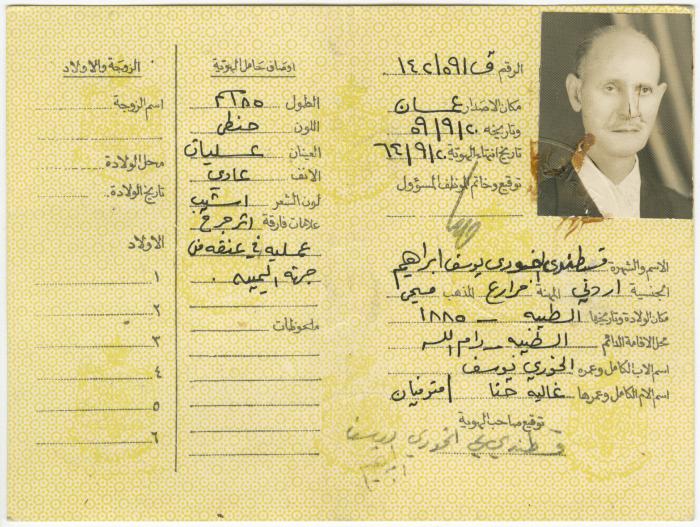 الرقم ق/٥٩/١٤٢
مكان الاصدار عمان
وتاريخه ٥٩/٩/٢٠
تاريخ انتهاء الهوية ٦٤/٩/٢٠
توقيع وخاتم الموظف المسؤول
الاسم والشهرة قسطندي الخوري يوسف ابراهيم
الجنسية اردني المهنة مزارع المذهب مسيحي
مكان الولادة وتاريخها الطيبه - ١٨٨٥
محل الاقامة الدائم الطيبه - رام الله
اسم الاب الكامل وعمره الخوري يوسف
اسم الام الكامل وعمرها غاليه حنا متوفيان
توقيع صاحب الهوية
قسطندي الخوري يوسف
ابراهيم
اوصاف حامل الهوية
الطول
اللون حنطي
العينان عسليات
الانف عادي
لون الشعر اشيب
علامات فارقة اثر جرح
عمليه في عنقه من
جهته اليمين
ملحوظات
الزوجة والاولاد
اسم الزوجة
محل الولادة
تاريخ الولادة
الاولاد
١
٢
٣
٤
٥
٦